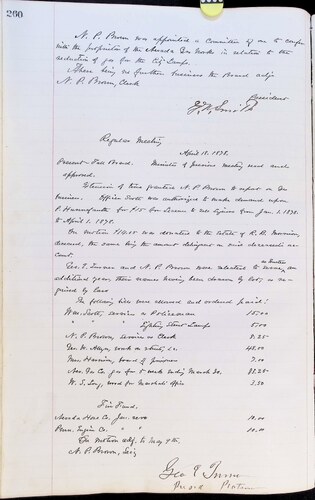 260
N. P. Brown was appointed a Committee of one to confer
with the proprietor of the Nevada Gas Works in relation to the
reduction of gas for the City Lamps.
There being no further business the Board adjd
N. P. Brown, Clerk
President
Regular Meeting
April 18. 1878.
Present - Full Board. Minutes of previous meeting read and
approved.
Extension of time granted N. P. Brown to report on Gas
business. Officer Scott was authorized to make demand upon
P. Hunnefauthe for $15 for License to run Engines from Jan. 1. 1878.
to April 1. 1878.
On motion $14.25 was donated to the estate of R. B.
deceased, the same being the amount delinquent on said deceased's ac-
count.
Geo. E. Turner and N. P. Brown was selected to serve, as Trustees
additional year, their names having been chosen by lot, as re-
quired by law
The following bills were allowed and ordered paid:
Wm. Scott, services as Policeman 15.00
" " " Lighting street Lamps 5.00
N. P. Brown, services as Clerk 8.25
Geo. W. Allyn, work on streets, &c. 48.00
Wm. Harrison, board of Prisoners 3.00
Nev. Gas Co. gas for 5 weeks ending March 30.
W. S. Long, wood for Marshal's Office 3.50
Fire Fund,
Nevada Hose Co. Jan. 10.00
Penn. Engine Co. " " 10.00
On motion adj. to May 9th.
N. P. Brown, Secy
Geo E Turner
Pres Protem